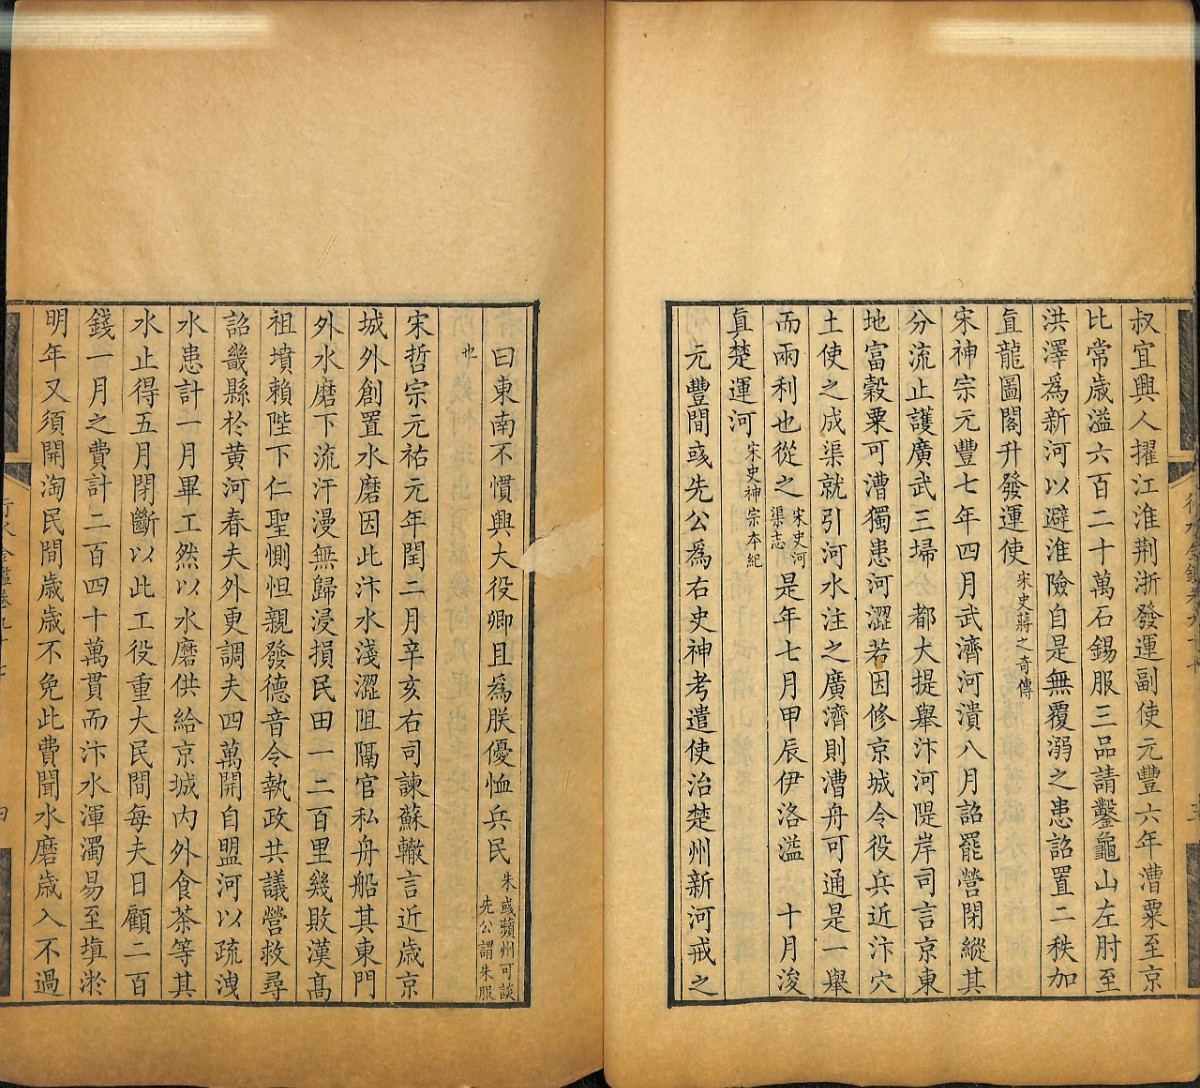 叔宜興人擢江淮荆浙發運副使元豐六年漕粟至京
比常歲溢六百二十萬石錫服三品請鑿龜山左肘至
洪澤爲新河以避淮險自是無覆溺之患詔置二秩加
直龍圖閣升發運使宋史蔣之奇傳
宋神宗元豐七年四月武濟河潰八月詔罷營閉縱其
分流止護廣武三埽 都大提舉汴河隄岸司言京東
地富穀粟可漕獨患河澀若因修京城令役兵近汴穴
土使之成渠就引河水注之廣濟則漕舟可通是一舉
而兩利也從之宋史河渠志 是年七月甲辰伊洛溢 十月浚
眞楚運河宋史神宗本紀
元豐間彧先公爲右史神考遣使治楚州新河戒之
曰東南不慣興大役卿且爲朕優恤兵民朱彧蘋州可談先公謂朱服
也
宋哲宗元祐元年閏二月辛亥右司諫蘇轍言近歲京
城外創置水磨因此汴水淺澀阻隔官私舟船其東門
外水磨下流汗漫無歸浸損民田一二百里幾敗漢高
祖墳賴陛下仁聖惻怛親發德音令執政共議營救尋
詔畿縣於黄河春夫外更調夫四萬開自盟河以疏洩
水患計一月畢工然以水磨供給京城內外食茶等其
水止得五月閉斷以此工役重大民間每夫日顧二百
錢一月之費計二百四十萬貫而汴水渾濁易至塡淤
明年又須開淘民間歲歲不免此費聞水磨歲入不過
行水金鑑卷九十七
四